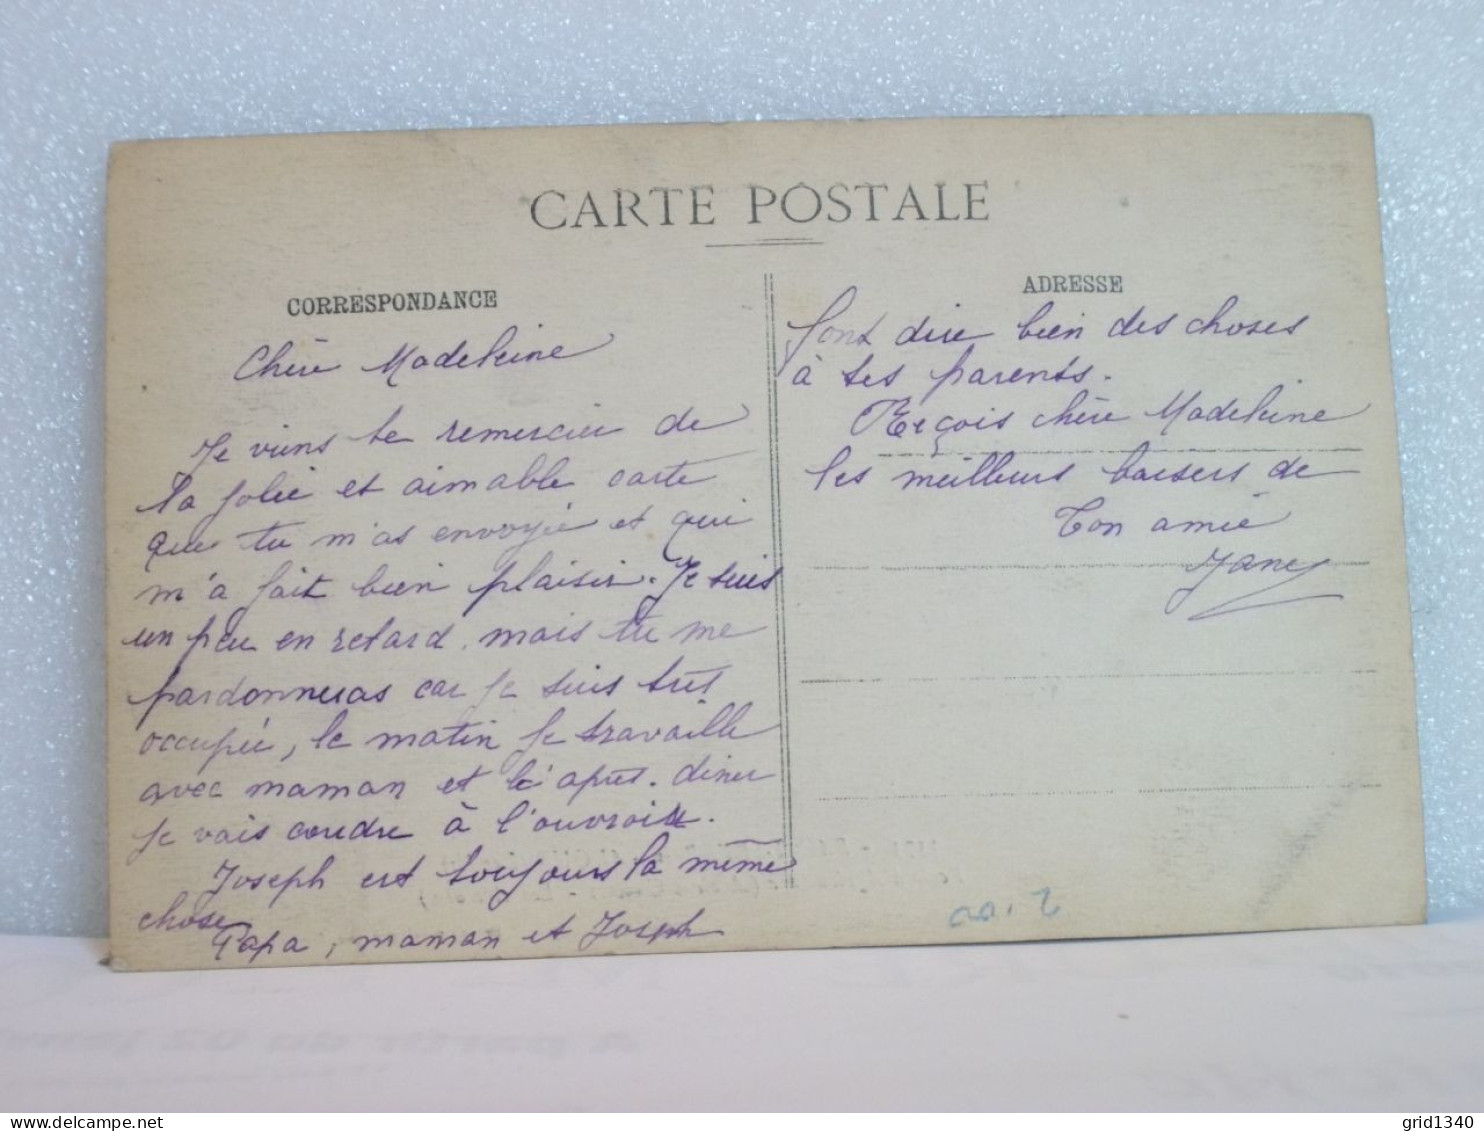 CARTE POSTALE
CORRESPONDANCE
Chère Madeleine
Je viens te remercier de
la jolie et aimable carte
que tu m'as envoyée et qui
m'a fait bien plaisir. Je suis
un peu en retard, mais tu me
pardonneras car je suis très
occupée, le matin je travaille
avec maman et le après-diner
je vais coudre à l'ouvroir.
Joseph est toujours la même
chose
Papa, maman et Joseph
ADRESSE
font dire bien des choses
à tes parents.
Reçois chère Madeleine
les meilleurs baisers de
Ton amie
Jane
grid1340